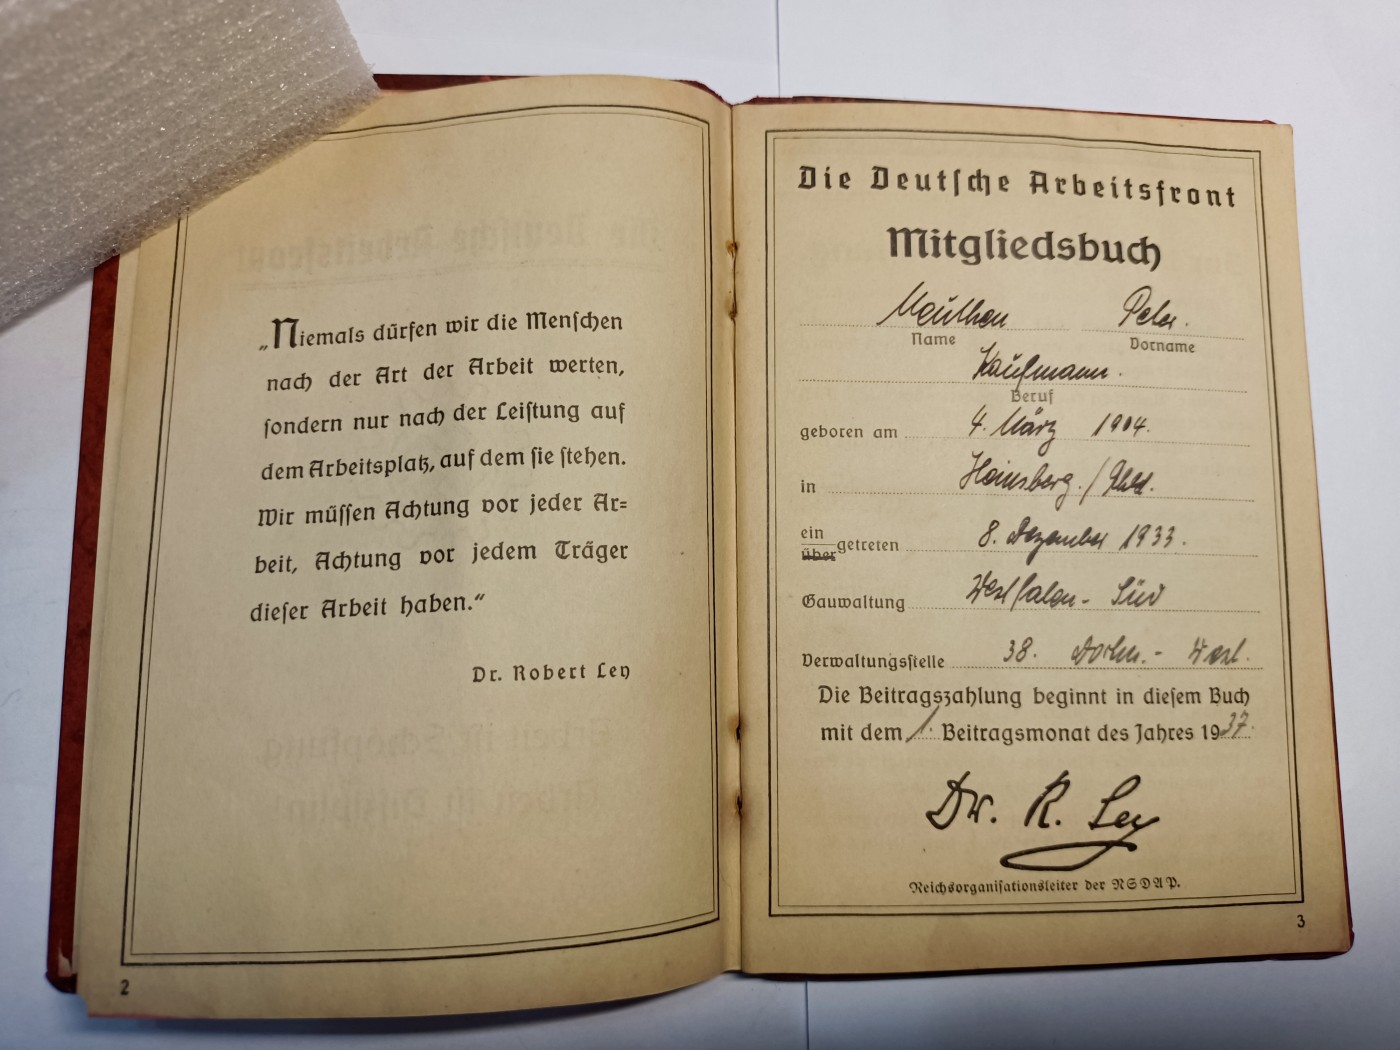 „Niemals dürfen wir die Menſchen
nach der Art der Arbeit werten,
ſondern nur nach der Leiſtung auf
dem Arbeitsplatz, auf dem ſie ſtehen.
Wir müſſen Achtung vor jeder Ar=
beit, Achtung vor jedem Träger
dieſer Arbeit haben.“
Dr. Robert Ley
2
Die Deutſche Arbeitsfront
Mitgliedsbuch
Peter.
Name Vorname
Kaufmann.
Beruf
geboren am 4. März 1904.
in Heinsberg./Rhld.
ein
über getreten 8. Dezember 1933.
Gauwaltung Westfalen-Süd
Verwaltungsſtelle 38. Dortm.-West.
Die Beitragszahlung beginnt in dieſem Buch
mit dem 1. Beitragsmonat des Jahres 1937.
Dr. R. Ley
Reichsorganiſationsleiter der NSDAP.
3